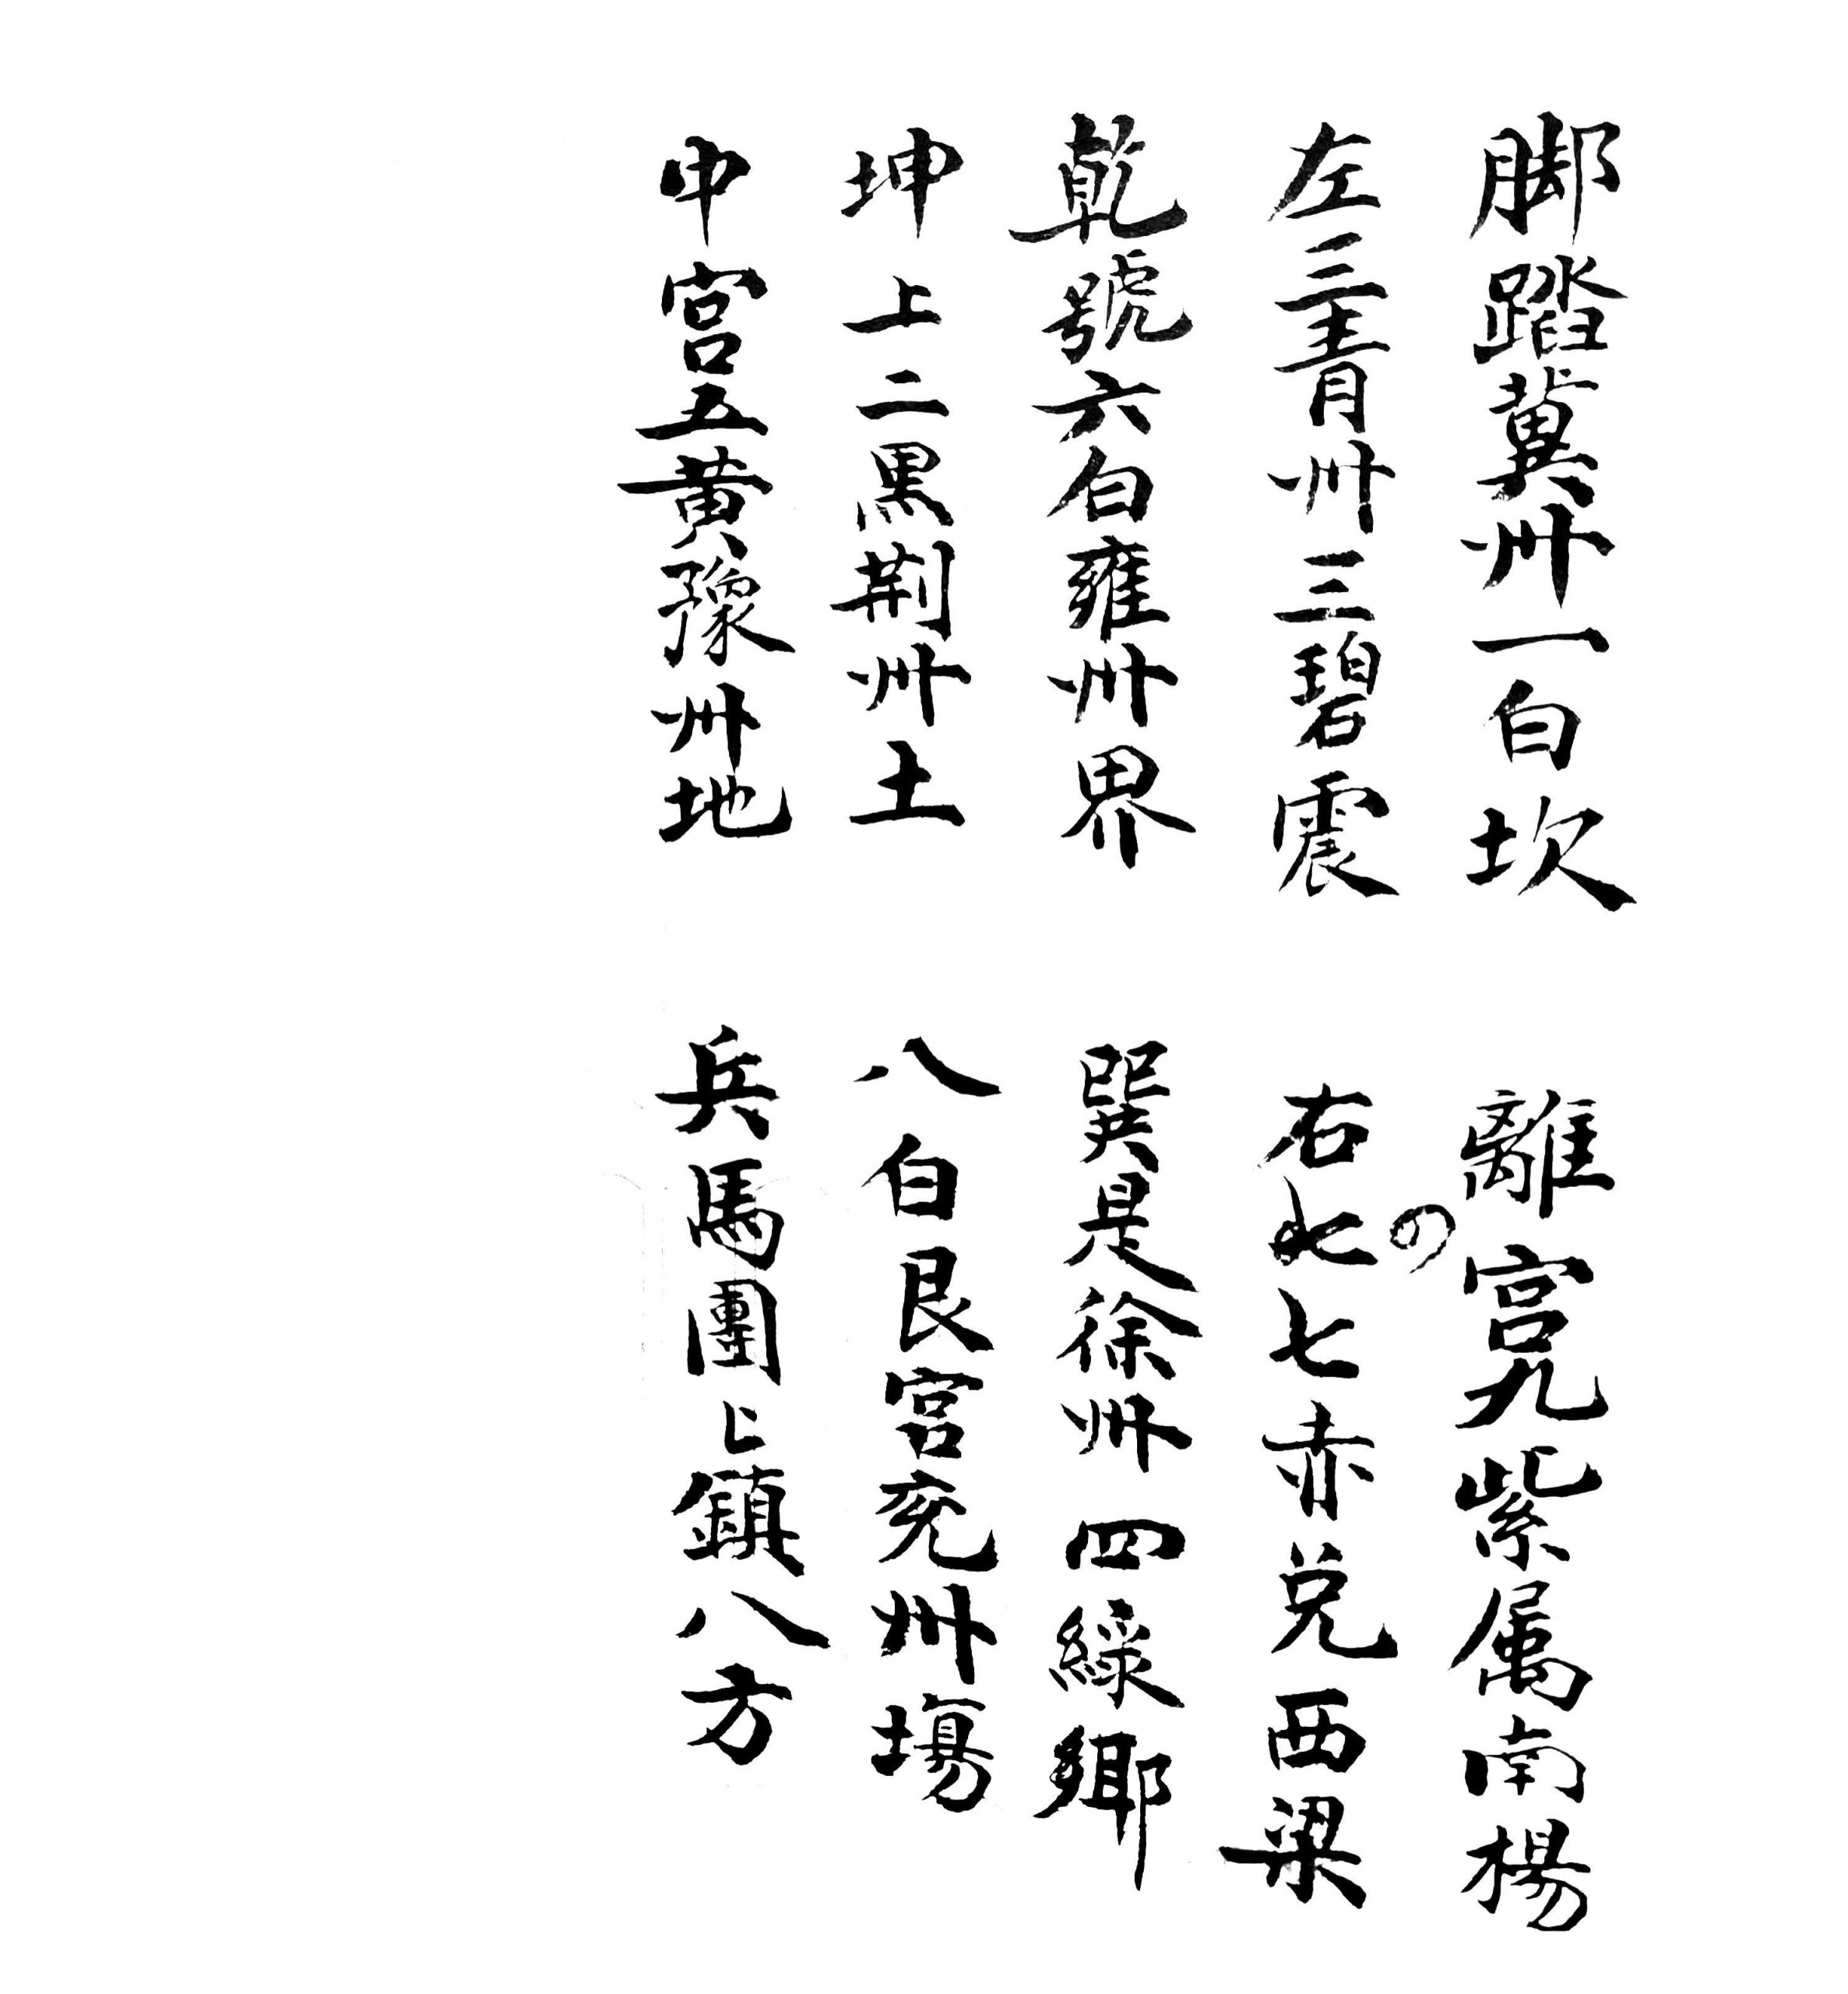 脚踏冀州一白坎 離宮九紫属南楊
左三青州三碧震 右七赤兑西梁
乾號六白雍州界 巽是徐州四綠鄉
坤上二黒荆州土 八白艮宮兖州塲
中宮五黄豫州地 兵馬團〻鎮八方